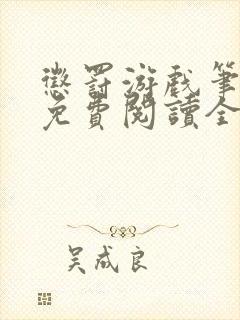 懲罰游戲筆
免費閱讀全
吴成良